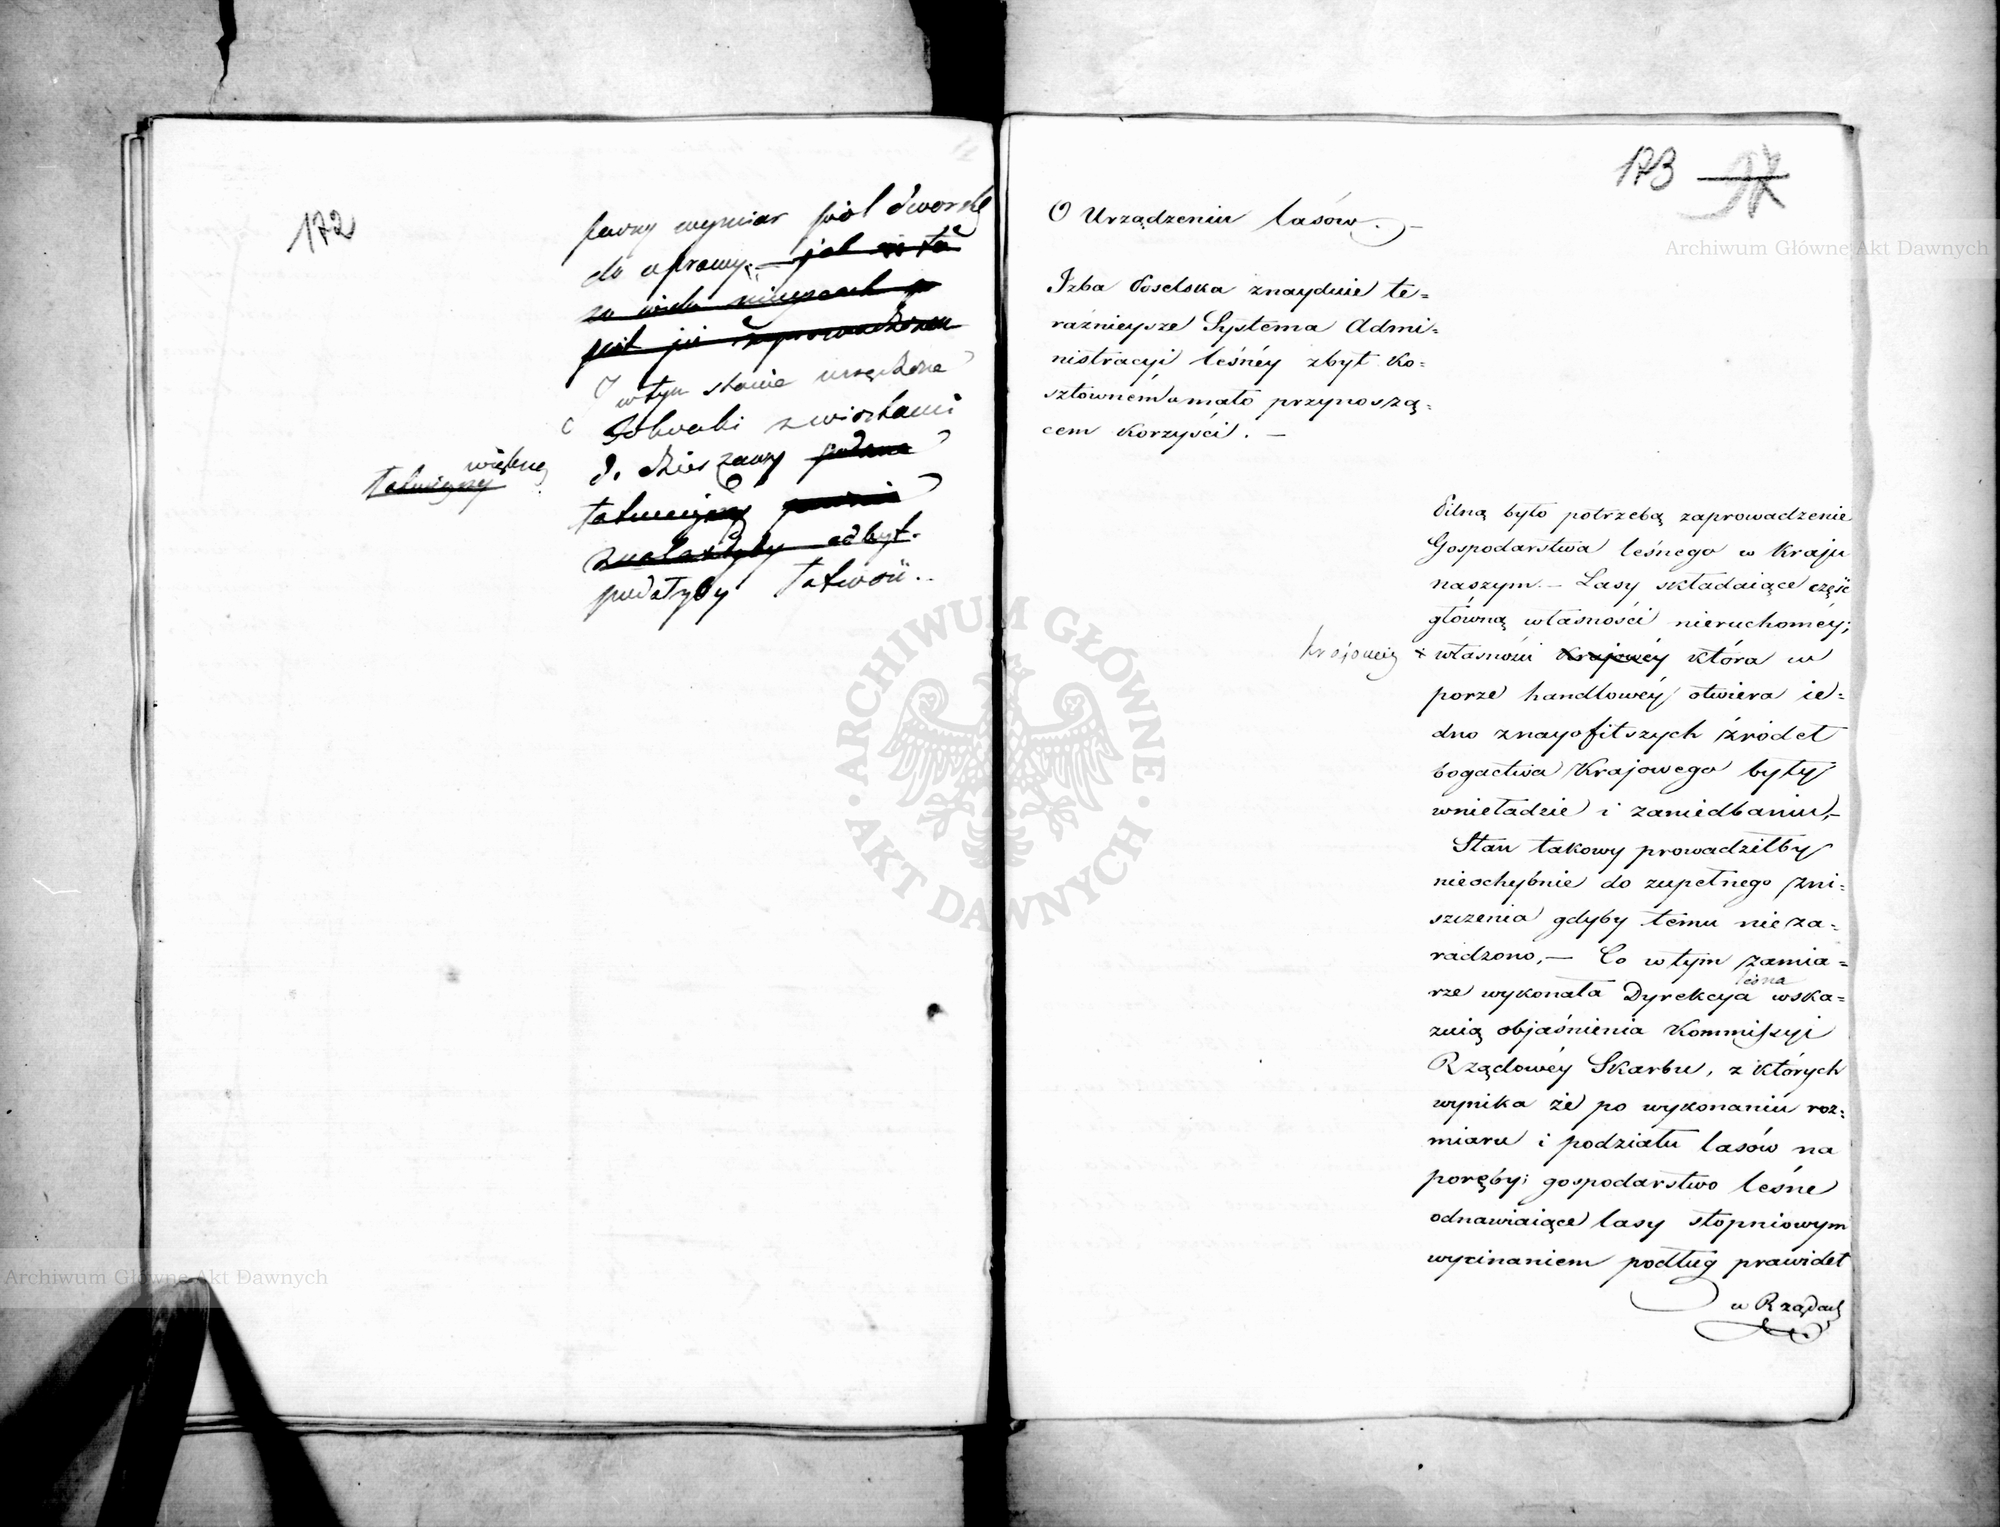 172
pewny wymiar pól dworsk
do uprawy. jak to
w wielu mieyscach
jest już zaprowadzon
W tym stanie urządzone
Folwarki z wioskami
większey
łatwieyszy
d. dzierzawy podane
łatwieyszy
znalazłyby odbyt.
podałyby łatwość..
173
O Urządzeniu lasów. —
Izba Poselska znayduie te=
raźnieysze Systema Admi=
nistracyi leśnéy zbyt ko=
sztowném a mało przynoszą=
cem korzyści. —
Pilną było potrzebą zaprowadzenie
Gospodarstwa leśnego w Kraju
naszym. — Lasy składaiące część
główną własności nieruchoméy;
krajowéy × własności Krajowéy która w
porze handlowéy otwiera ie=
dno znayofitszych źródeł
bogactwa Krajowego były
wnieładzie i zaniedbaniu, —
Stan takowy prowadziłby
nieochybnie do zupełnego zni=
szczenia gdyby temu nie za=
radzono, — Co w tym zamia=
leśna
rze wykonała Dyrekcya wska=
zuią objaśnienia Kommissyi
Rządowéy Skarbu, z których
wynika że po wykonaniu roz=
miaru i podziału lasów na
poręby; gospodarstwo leśne
odnawiaiące lasy stopniowym
wycinaniem podług prawideł
w Rządach
Archiwum Główne Akt Dawnych
Archiwum Główne Akt Dawnych
ARCHIWUM GŁÓWNE · AKT DAWNYCH ·